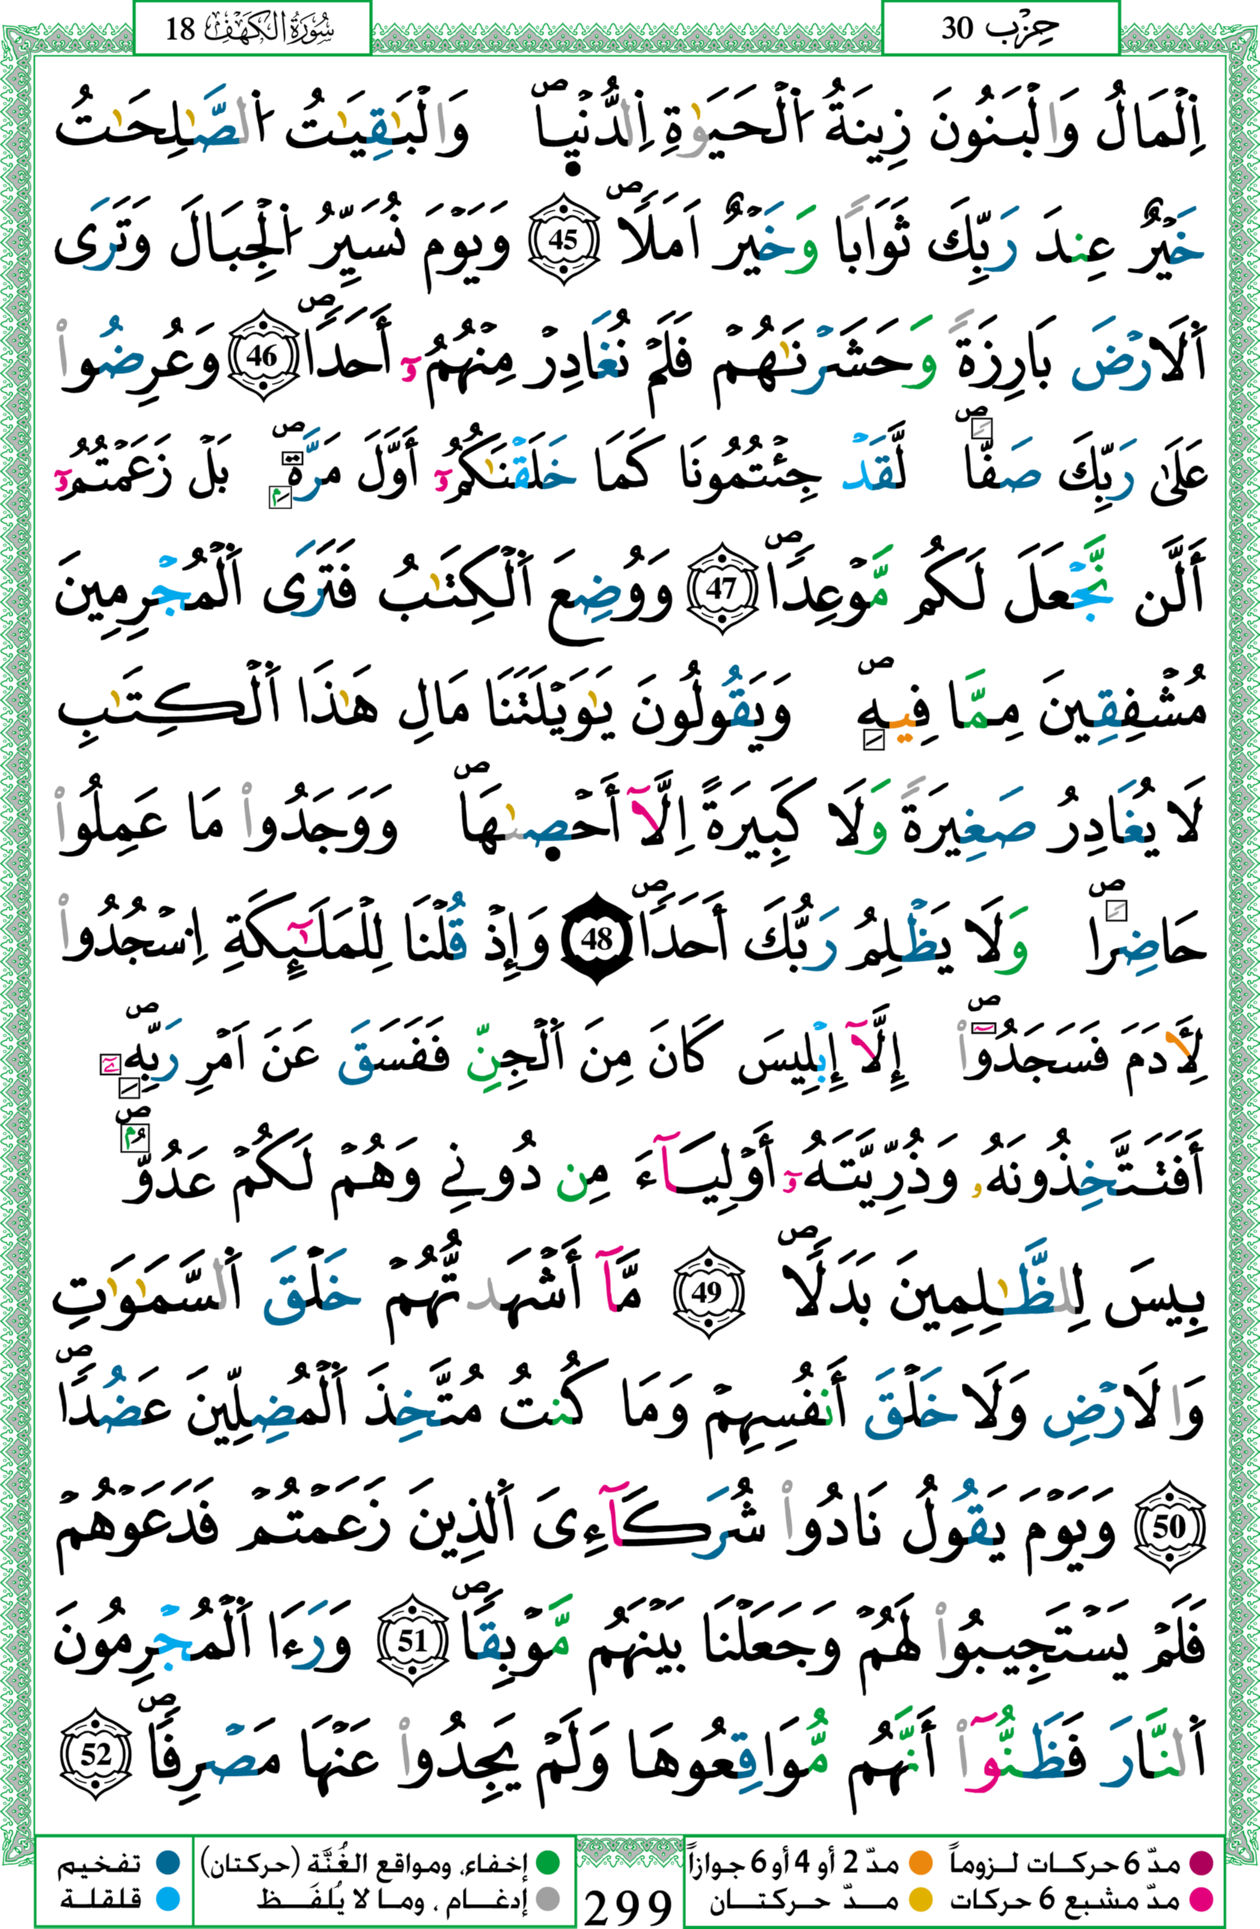 حِزْب 30
سُورَةُ الكَهْفِ 18
اِ۬لْمَالُ وَالْبَنُونَ زِينَةُ اُ۬لْحَيَوٰةِ اِ۬لدُّنْي۪اۖ وَالْبَٰقِيَٰتُ اُ۬لصَّٰلِحَٰتُ
خَيْرٌ عِندَ رَبِّكَ ثَوَاباٗ وَخَيْرٌ اَمَلاٗۖ 45 وَيَوْمَ نُسَيِّرُ اُ۬لْجِبَالَ وَتَرَى
اَ۬لَارْضَ بَارِزَةٗ وَحَشَرْنَٰهُمْ فَلَمْ نُغَادِرْ مِنْهُمُۥٓ أَحَداٗۖ 46 وَعُرِضُواْ
عَلَىٰ رَبِّكَ صَفّاٗۖ لَّقَدْ جِئْتُمُونَا كَمَا خَلَقْنَٰكُمُۥٓ أَوَّلَ مَرَّةِۢۖ بَلْ زَعَمْتُمُۥٓ
أَلَّن نَّجْعَلَ لَكُم مَّوْعِداٗۖ 47 وَوُضِعَ اَ۬لْكِتَٰبُ فَتَرَى اَ۬لْمُجْرِمِينَ
مُشْفِقِينَ مِمَّا فِيهِۖ وَيَقُولُونَ يَٰوَيْلَتَنَا مَالِ هَٰذَا اَ۬لْكِتَٰبِ
لَا يُغَادِرُ صَغِيرَةٗ وَلَا كَبِيرَةً اِلَّآ أَحْص۪ىٰهَاۖ وَوَجَدُواْ مَا عَمِلُواْ
حَاضِراٗۖ وَلَا يَظْلِمُ رَبُّكَ أَحَداٗۖ 48 وَإِذْ قُلْنَا لِلْمَلَٰٓئِكَةِ اِ۟سْجُدُواْ
لِأَدَمَ فَسَجَدُوٓاْۖ إِلَّآ إِبْلِيسَ كَانَ مِنَ اَ۬لْجِنِّ فَفَسَقَ عَنَ اَمْرِ رَبِّهِۦٓۖ
أَفَتَتَّخِذُونَهُۥ وَذُرِّيَّتَهُۥٓ أَوْلِيَآءَ مِن دُونِے وَهُمْ لَكُمْ عَدُوُّۢۖ
بِيسَ لِلظَّٰلِمِينَ بَدَلاٗۖ 49 مَّآ أَشْهَدتُّهُمْ خَلْقَ اَ۬لسَّمَٰوَٰتِ
وَالَارْضِ وَلَا خَلْقَ أَنفُسِهِمْ وَمَا كُنتُ مُتَّخِذَ اَ۬لْمُضِلِّينَ عَضُداٗۖ
50 وَيَوْمَ يَقُولُ نَادُواْ شُرَكَآءِيَ اَ۬لذِينَ زَعَمْتُمْ فَدَعَوْهُمْ
فَلَمْ يَسْتَجِيبُواْ لَهُمْ وَجَعَلْنَا بَيْنَهُم مَّوْبِقاٗۖ 51 وَرَءَا اَ۬لْمُجْرِمُونَ
اَ۬لنَّارَ فَظَنُّوٓاْ أَنَّهُم مُّوَاقِعُوهَا وَلَمْ يَجِدُواْ عَنْهَا مَصْرِفاٗۖ 52
مدّ 6 حركات لـزوماً مدّ 2 أو 4 أو 6 جوازاً
مدّ مشبع 6 حركات مـدّ حـركتـان
إخفاء، ومواقع الغُنَّة (حركتان) تفخيم
إدغـام ، ومـا لا يُلفَـظ قلقلة
299